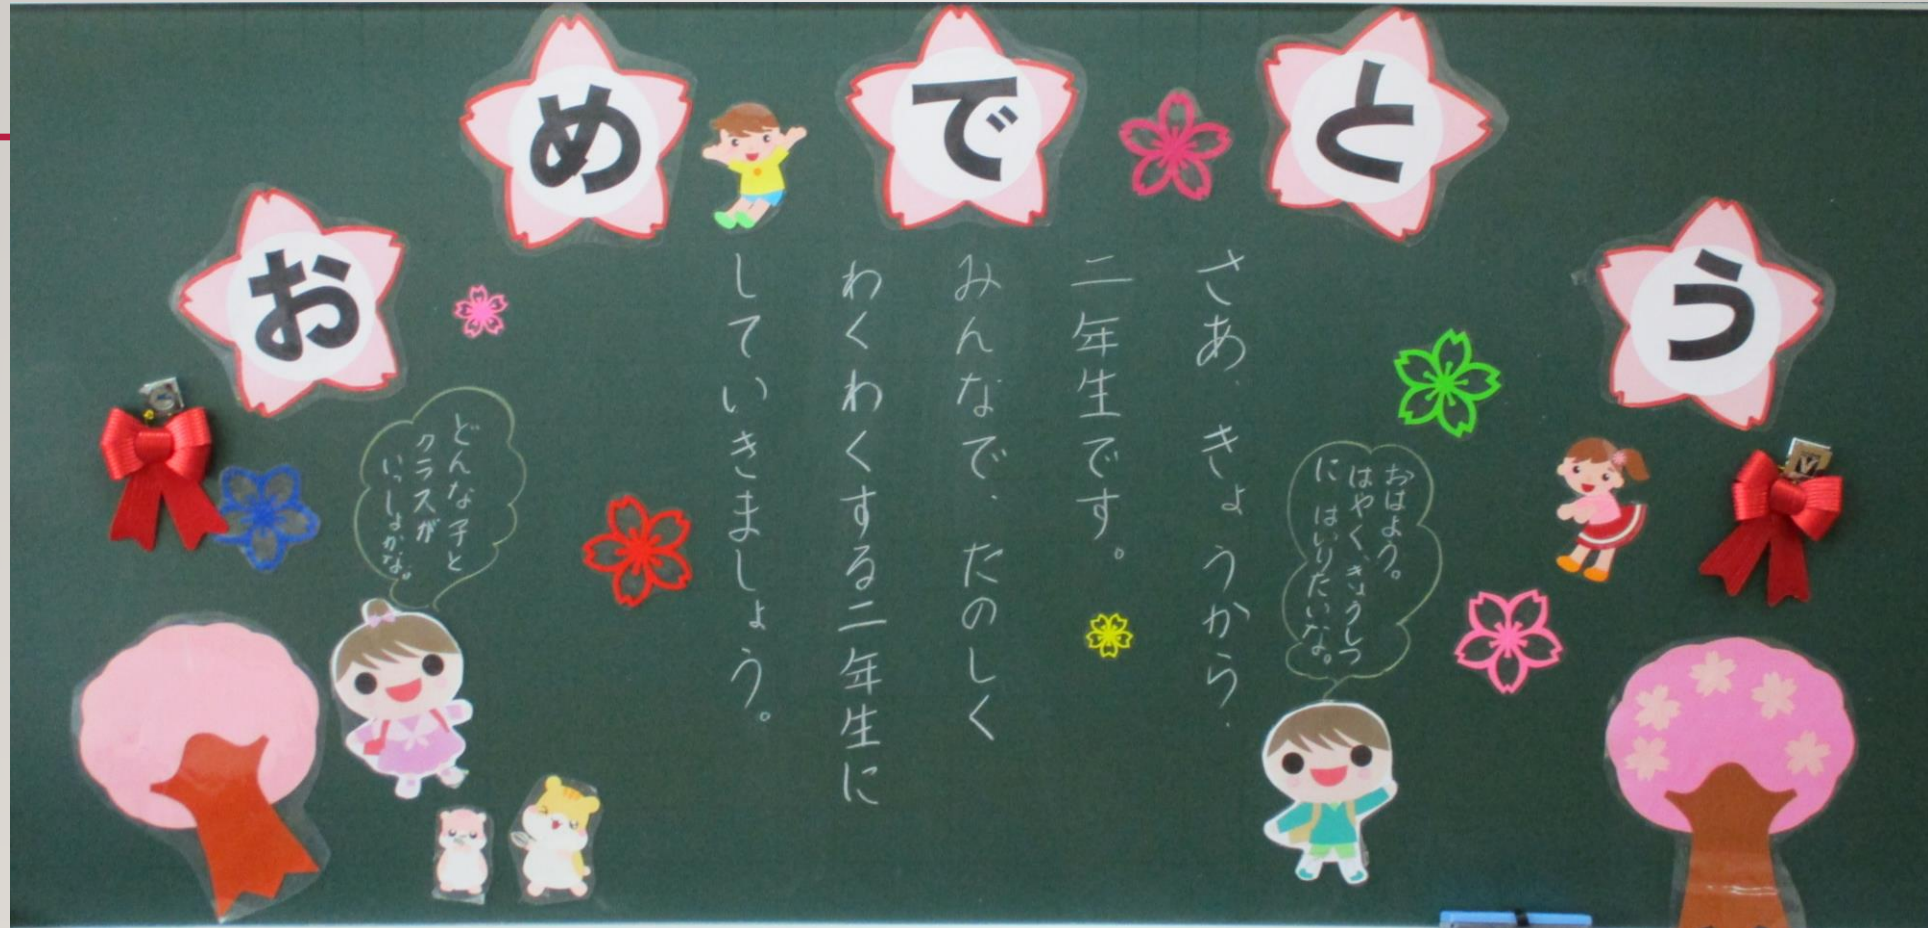 おめでとう
さあ、きょうから、
二年生です。
みんなで、たのしく
わくわくする二年生に
していきましょう。
おはよう。
はやく、きょうしつ
に はいりたいな。
どんな子と
クラスが
いっしょかな。